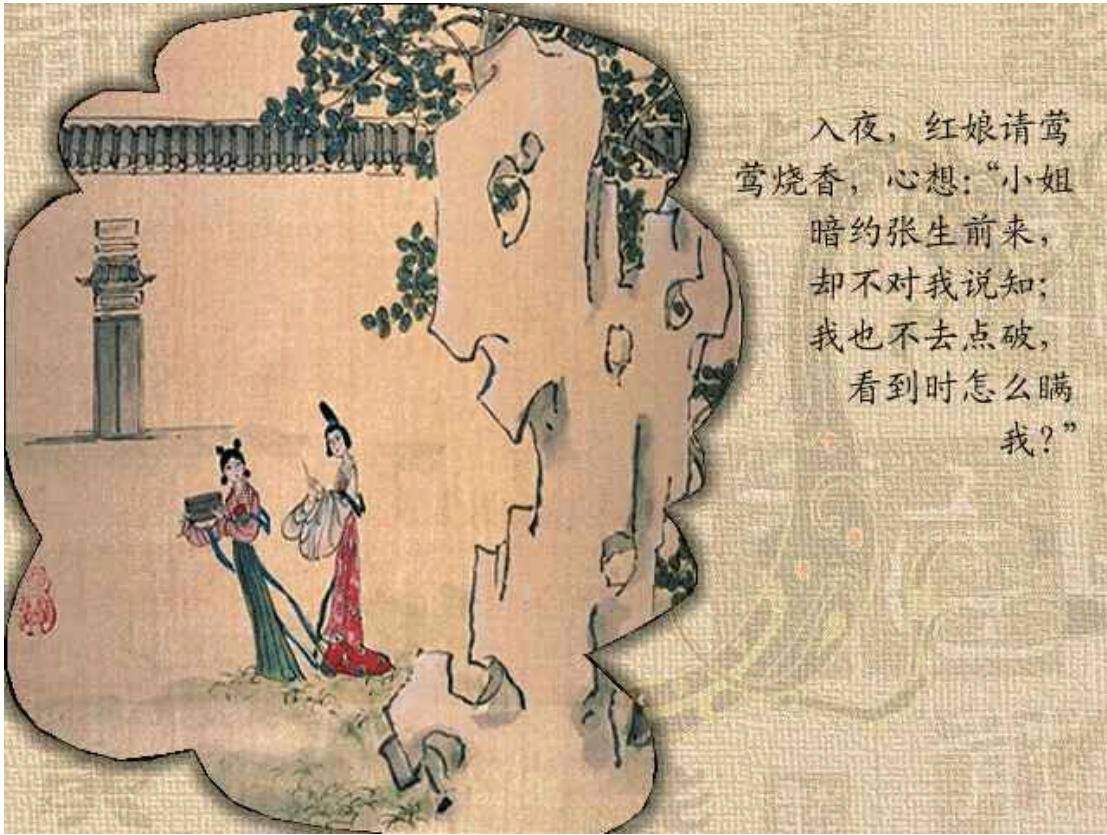 入夜，红娘请莺
莺烧香，心想：“小姐
暗约张生前来，
却不对我说知；
我也不去点破，
看到时怎么瞒
我？”